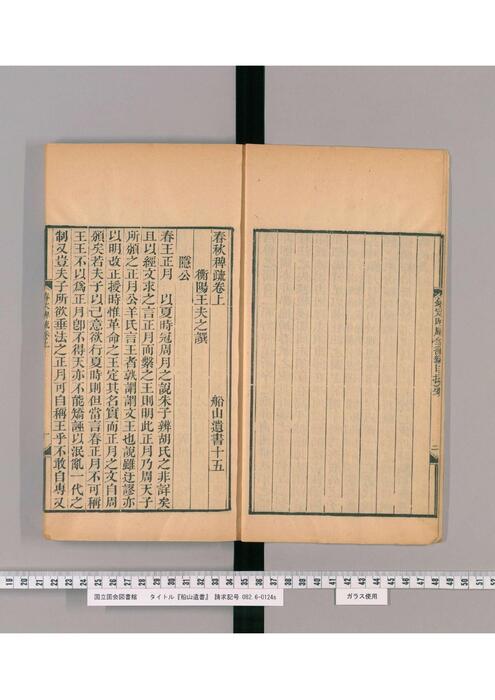 春秋稗疏卷上
船山遺書十五
衡陽王夫之譔
隱公
春王正月　以夏時冠周月之說朱子辨胡氏之非詳矣
且以經文求之言正月而繫之王則明此正月乃周天子
所頒之正月公羊氏言王者孰謂謂文王也說雖迂謬亦
以明改正授時惟革命之王定其名實而正月之文自周
頒矣若夫子以己意欲行夏時則但當言春正月不可稱
王王不以爲正月卽不得天亦不能矯誣以泯亂一代之
制又豈夫子所欲垂法之正月可自稱王乎不敢自專又
春秋稗疏卷上
一
二
19 20 21 22 23 24 25 26 27 28 29 30 31 32 33 34 35 36 37 38 39 40 41 42 43 44 45 46 47 48 49 50 51 52
国立国会図書館　タイトル『船山遺書』　請求記号 082.6-0124s
ガラス使用